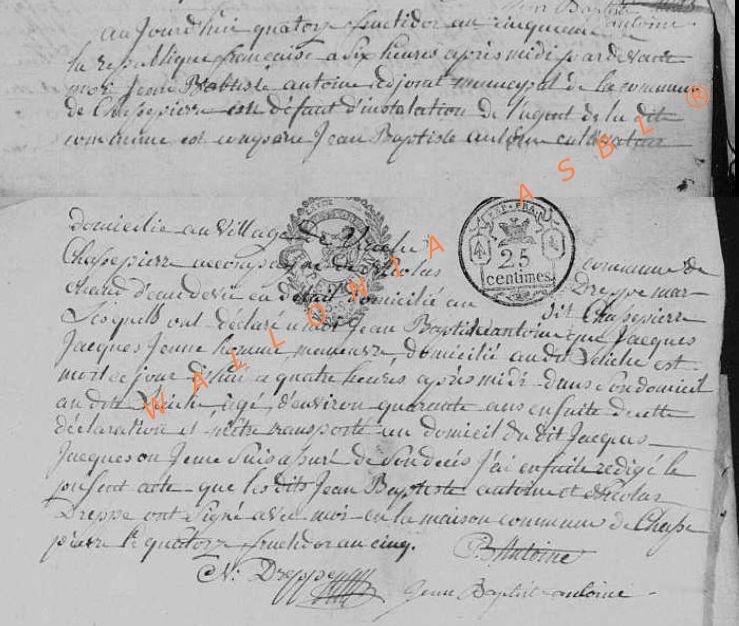 Jean Baptiste
antoine.
aujourd'huy quatorze fructidor an cinquieme de
la republique francaise a six heures après midi pardevant
moi Jean Baptiste antoine adjoint municipal de la commune
de Chassepierre en défaut d'instalation de l'agent de la dit
commune est comparu Jean Baptiste antoine cultivateur
domicilié au village de
Chassepierre accompagné de Nicolas
commune de
Dreppe mar
chand d'eau de vie en détail domicilié au
dit Chassepierre
Lesquels ont déclaré a moi Jean Baptiste antoine que Jacques
Jacques Jeune homme domicilié au dit est
mort ce jour d'hui a quatre heures après midi dans son domicil
au dit agé d'environ quarante ans ensuite de cette
déclaration et m'être transporté au domicil du dit Jacques
Jacques ou Jeme suis assuré de son decès J'ai ensuite redigé le
present acte que les dits Jean Baptiste antoine et Nicolas
Dreppe ont signé avec moi en la maison commune de Chasse
pierre le quatorze fructidor an cinq.
B Antoine
N. Dreppe
Jean Baptist antoine
REP. FRA.
25
centimes.
WALLONIA ASBL ®